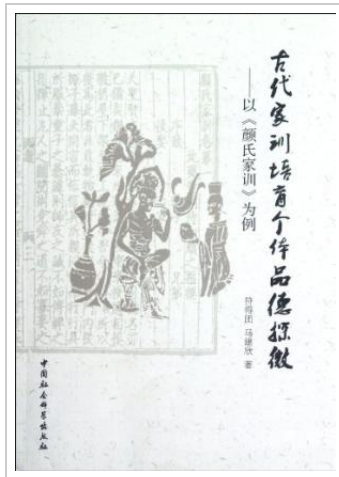 古代家训培育个体品德探微
——以《颜氏家训》为例
符得团 马建欣 著
中国社会科学出版社